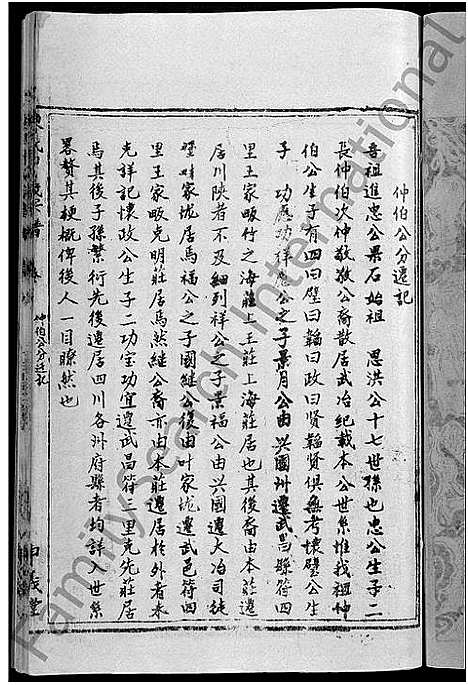 仲伯公分遷記
吾祖進忠公果石始祖 恩洪公十七世孫也忠公生子二
長仲伯次仲敬敬公裔散居武冶紀載本公世系惟我祖仲
伯公生子有四曰璧曰韜曰政曰賢韜賢俱無考壞璧公生
子 功應功祥應公之子景月公由興國州遷武昌縣符四
里王家畈竹之海莊上王莊上海莊居也其後裔由本莊遷
居川陝者不及細列祥公之子景福公由興國遷大冶司徒
家垅居焉福公之子國繼公復由叶家垅遷武邑符四
里王家畈克明莊居焉然繼公裔亦由本莊遷居於外者未
克詳記懷政公生子二功宝功宜遷武昌符二里克先莊居
焉其後子孫繁衍先後遷居四川各州府縣者均詳入世系
畧贅其梗概俾後人一目瞭然也
仲伯公分迁记
申義堂
FamilySearch International